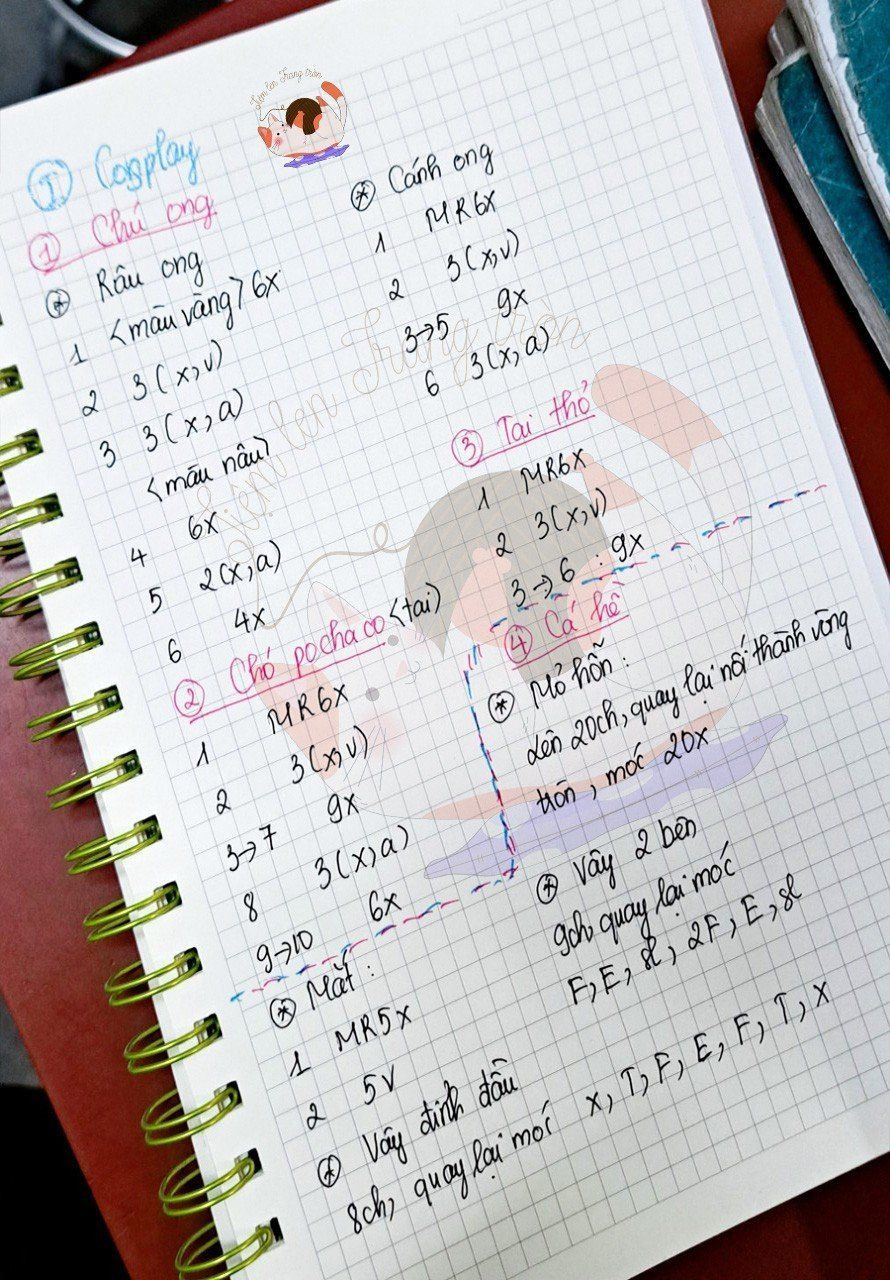 Tiệm len Trang tròn
I Cosplay
1 Chú ong
* Râu ong
<màu vàng> 6x
1
2 3(x,v)
3 3(x,a)
<màu nâu>
4 6x
5 2(x,a)
6 4x
* Cánh ong
1 MR6x
2 3(x,v)
3→5 9x
6 3(x,a)
2 Chó pochacco <tai>
1 MR6x
2 3(x,v)
3→7 9x
8 3(x,a)
9→10 6x
3 Tai thỏ
1 MR6x
2 3(x,v)
3→6 : 9x
4 Cá hề
* Mỏ hỗn :
Lên 20ch, quay lại nối thành vòng
tròn, móc 20x
* Vây 2 bên
9ch, quay lại móc
F, E, sl, 2F, E, sl
* Mắt :
1 MR5x
2 5v
* Vây đỉnh đầu
8ch, quay lại móc x, T, F, E, F, T, x
Tiệm len Trang tròn